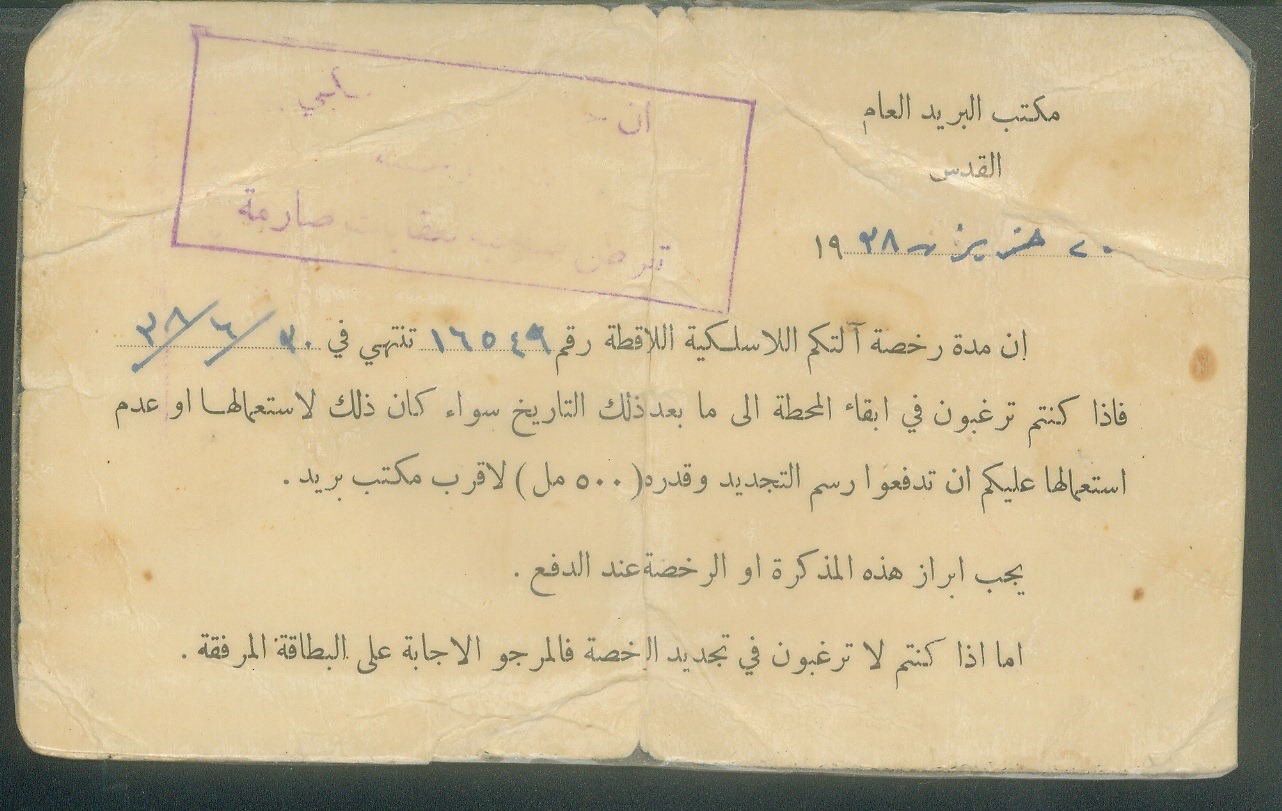 مكتب البريد العام
القدس
٢٠ حزيران ١٩٣٨
ان
صارمة
ان مدة رخصة آلتكم اللاسلكية اللاقطة رقم ١٦٥٤٩ تنتهي في ٣٠/٦/٣٨
فاذا كنتم ترغبون في ابقاء المحطة الى ما بعد ذلك التاريخ سواء كان ذلك لاستعمالها او عدم
استعمالها عليكم ان تدفعوا رسم التجديد وقدره (٥٠٠ مل) لاقرب مكتب بريد .
يجب ابراز هذه المذكرة او الرخصة عند الدفع .
اما اذا كنتم لا ترغبون في تجديد الرخصة فالمرجو الاجابة على البطاقة المرفقة .